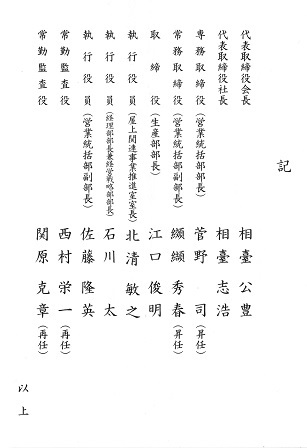 記
代表取締役会長 相臺 公豊
代表取締役社長 相臺 志浩
専務取締役(営業統括部部長) 菅野 司(昇任)
常務取締役(営業統括部副部長) 纐纈 秀春(昇任)
取締役(生産部部長) 江口 俊明
執行役員(屋上関連事業推進室室長) 北清 敏之
執行役員(経理部部長兼経営戦略部部長) 石川 太
執行役員(営業統括部副部長) 佐藤 隆英
常勤監査役 西村 栄一(再任)
常勤監査役 関原 克章(再任)
以上